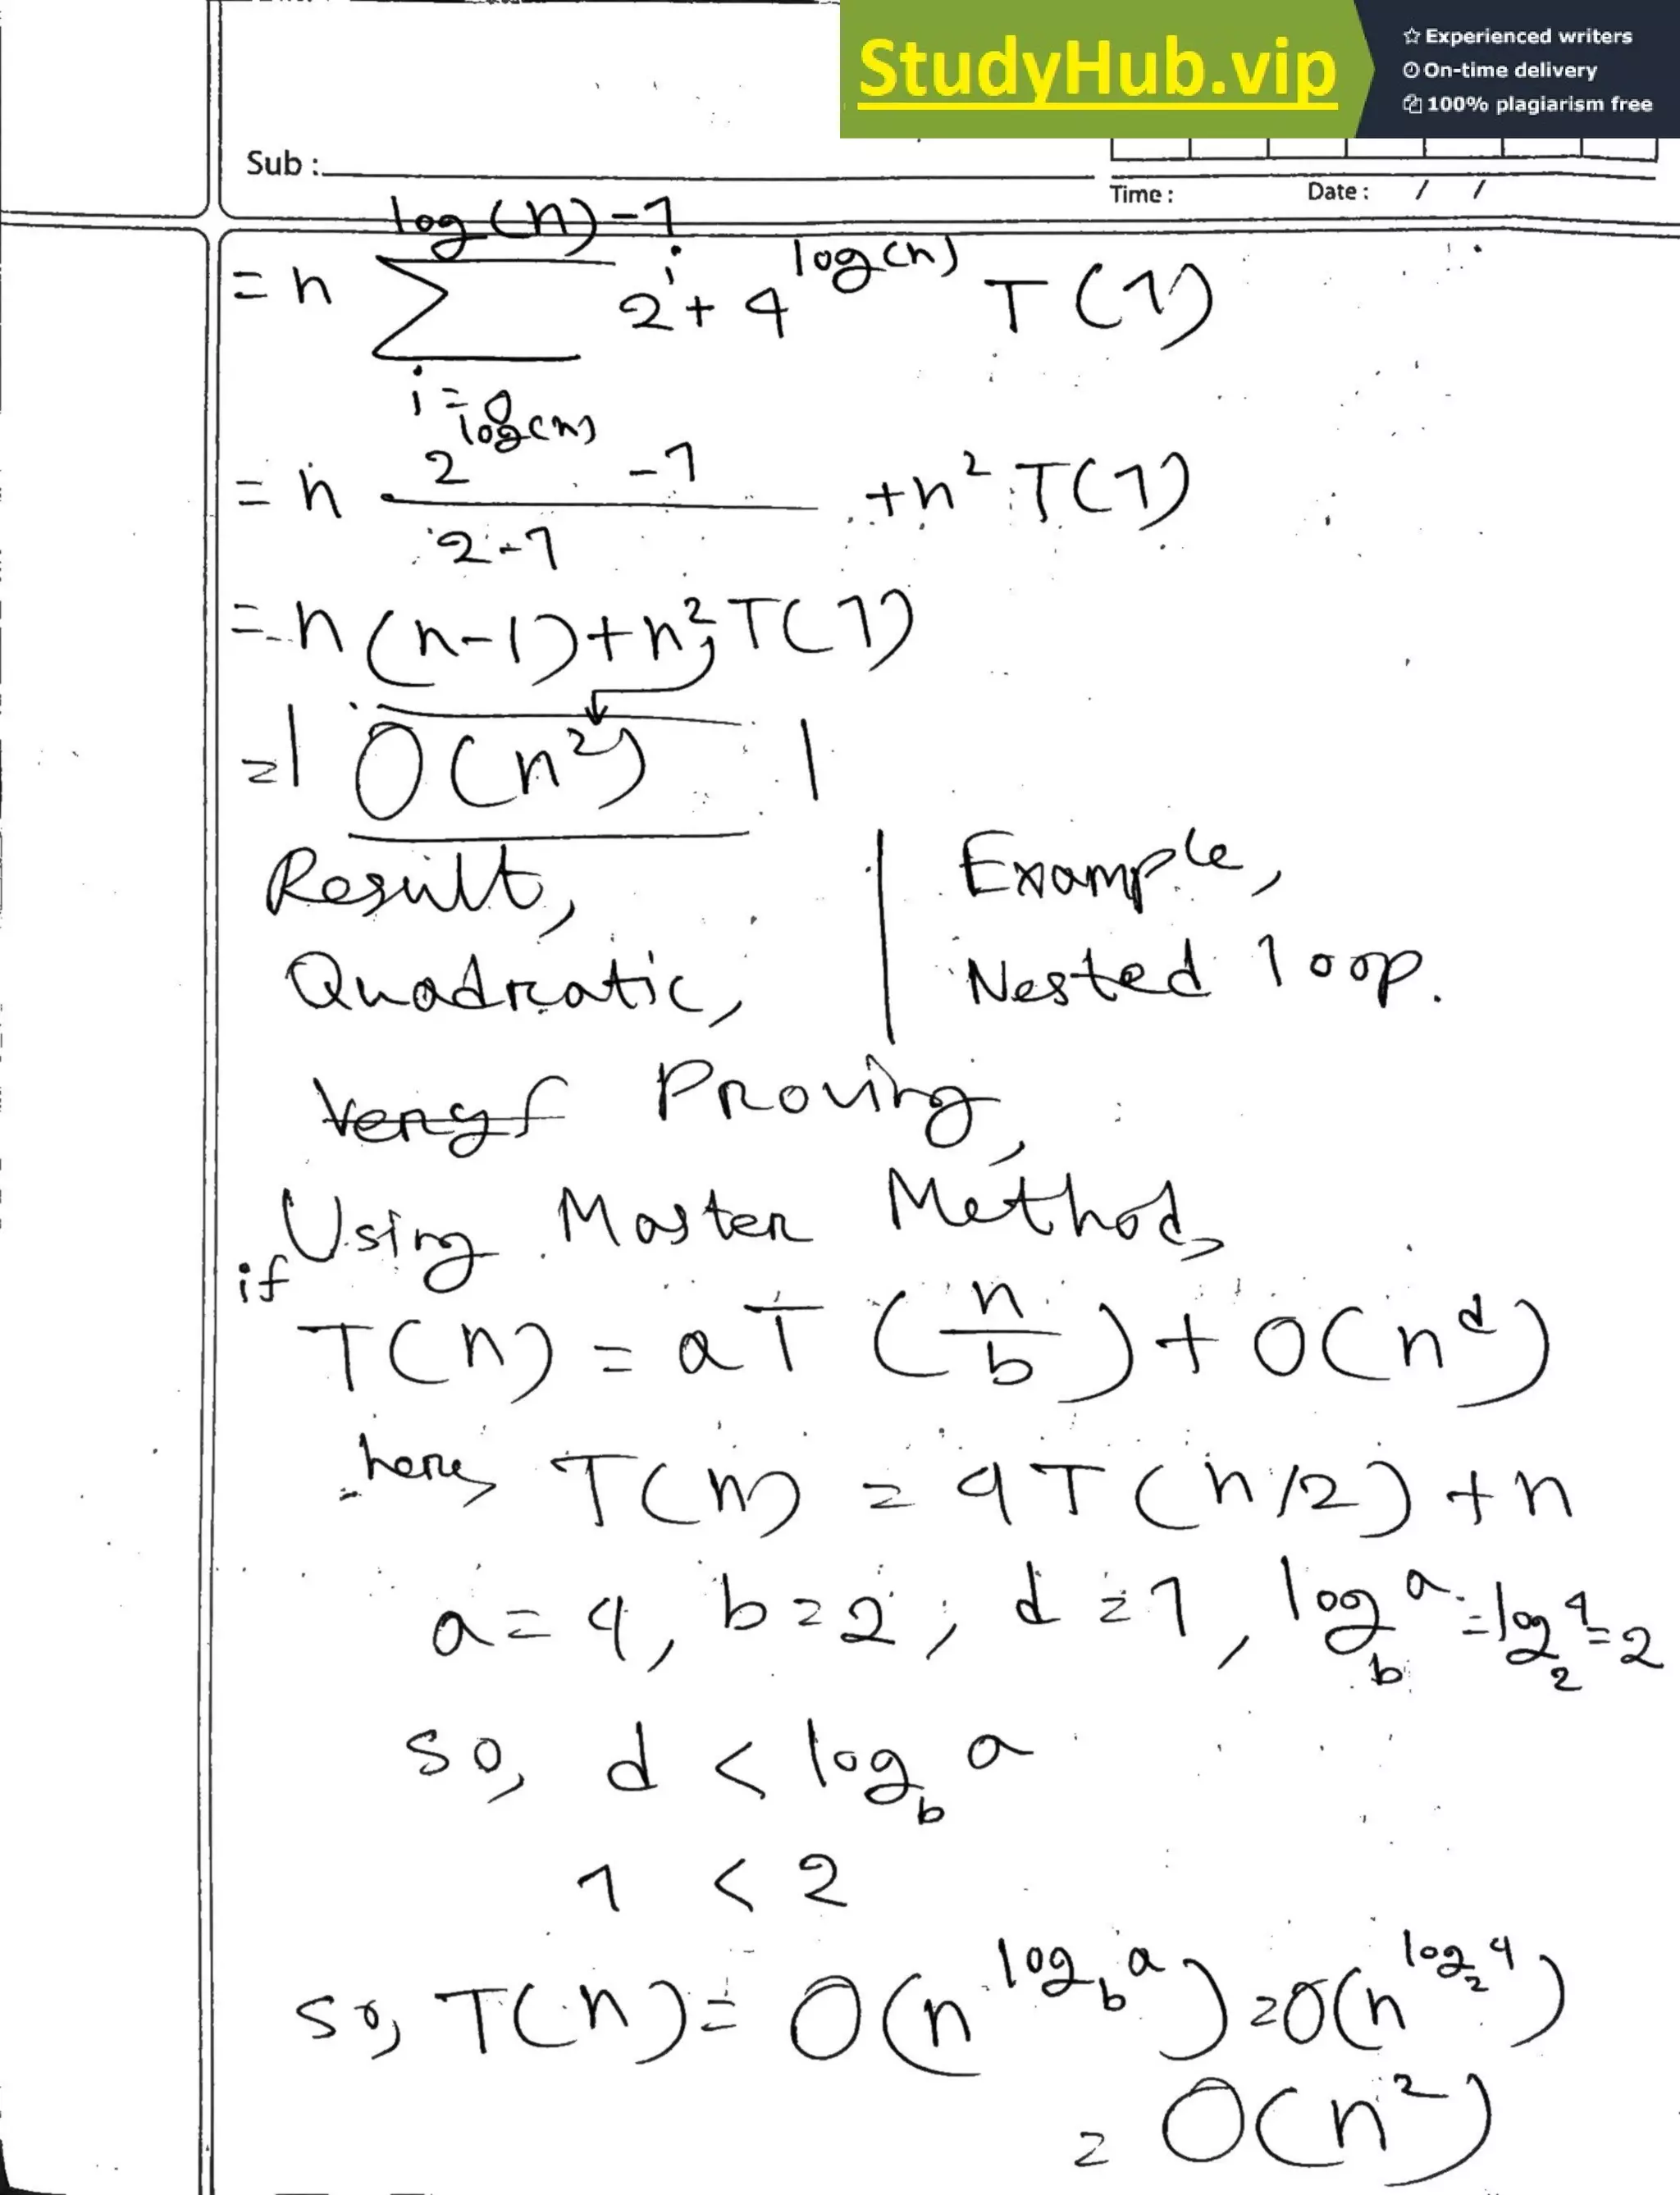 StudyHub.vip
Experienced writers
On-time delivery
100% plagiarism free
Sub :
Time : Date : / /
log(n)-1
= n ∑ 2^i + 4^log(n) T(1)
i=0
= n (2^log(n) - 1)/(2-1) + n² T(1)
= n(n-1) + n² T(1)
= | O(n²) |
Result, | Example,
Quadratic, | Nested loop.
Veryf Proving,
Using Master Method,
if
T(n) = aT(n/b) + O(n^d)
here, T(n) = 4T(n/2) + n
a = 4, b = 2, d = 1, log_b a = log_2 4 = 2
so, d < log_b a
1 < 2
so, T(n) = O(n^log_b a) = O(n^log_2 4)
= O(n²)